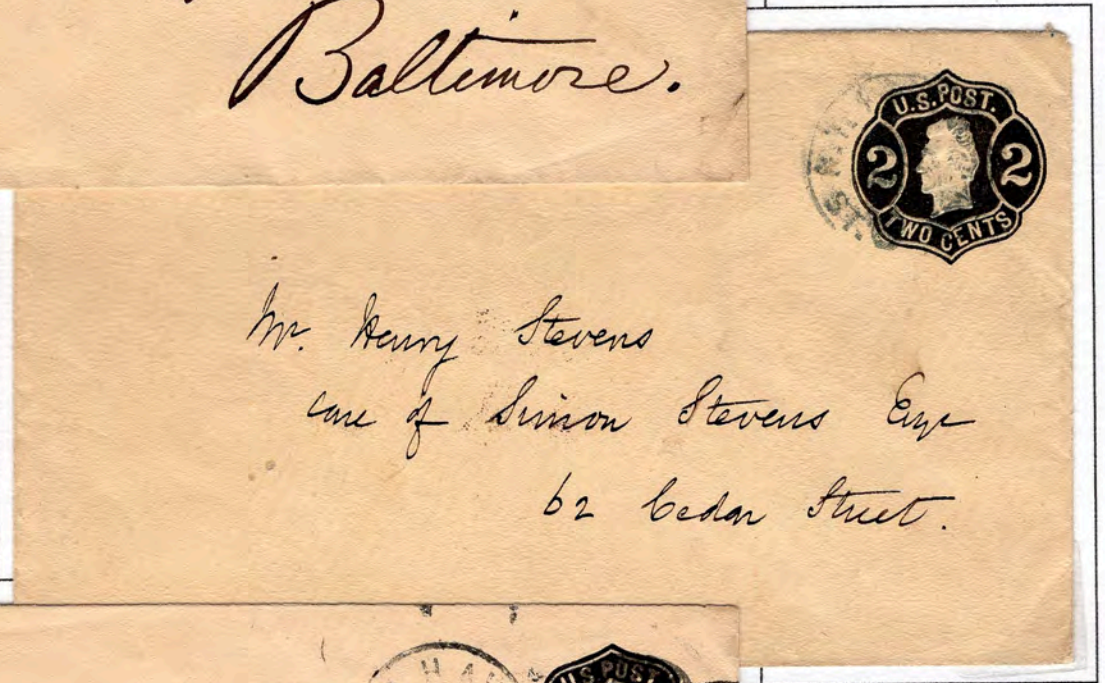 Baltimore.
U.S.POST.
2 2
TWO CENTS
Mr. Henry Stevens
care of Simon Stevens Esqr
62 Cedar Street.
HA
U.S.POST